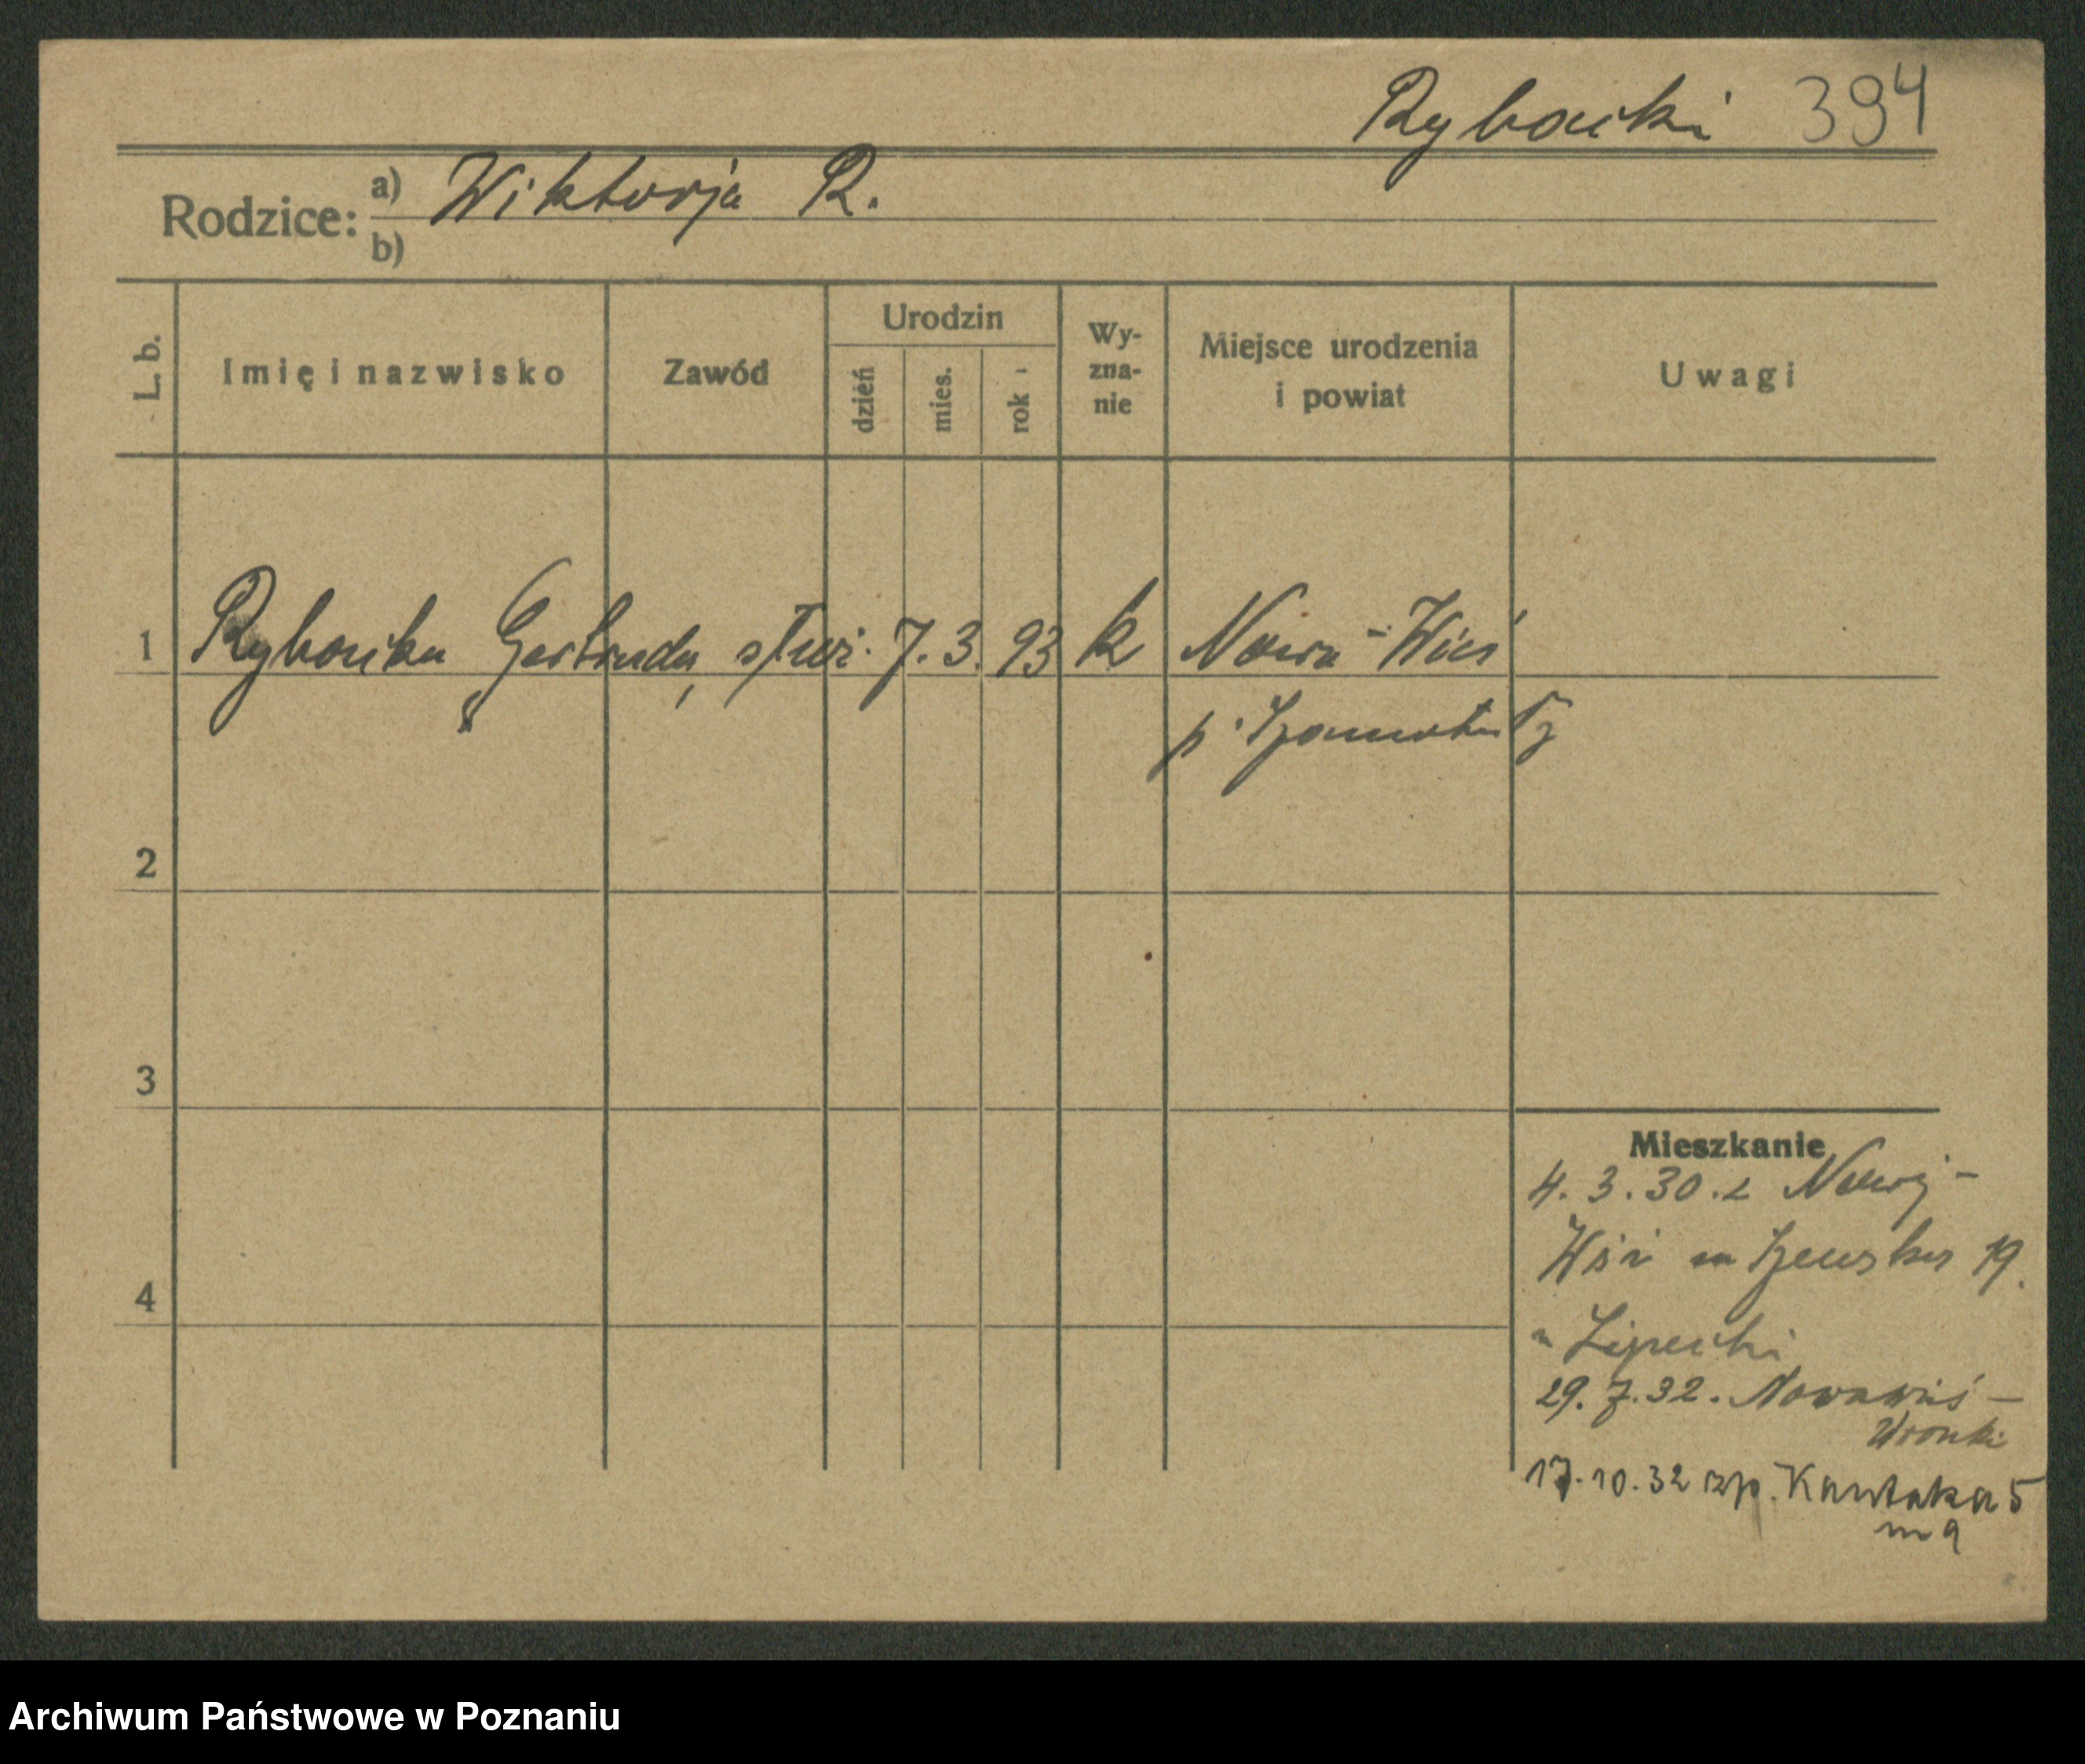 Rybacki 394
Rodzice: a) Wiktorja R.
b)
L. b.
Imię i nazwisko
Zawód
Urodzin
dzień
mies.
rok
Wy-
zna-
nie
Miejsce urodzenia
i powiat
Uwagi
1 Rybacka Gertruda, służ. 7. 3. 93 k Nowa-Wieś
p. Szamotuły
2
3
4
Mieszkanie
4. 3. 30. z Nowej-
Wsi 19.
u Lipecki
29. 7. 32. Nowawieś -
Wronki
17. 10. 32 5
m 9
Archiwum Państwowe w Poznaniu